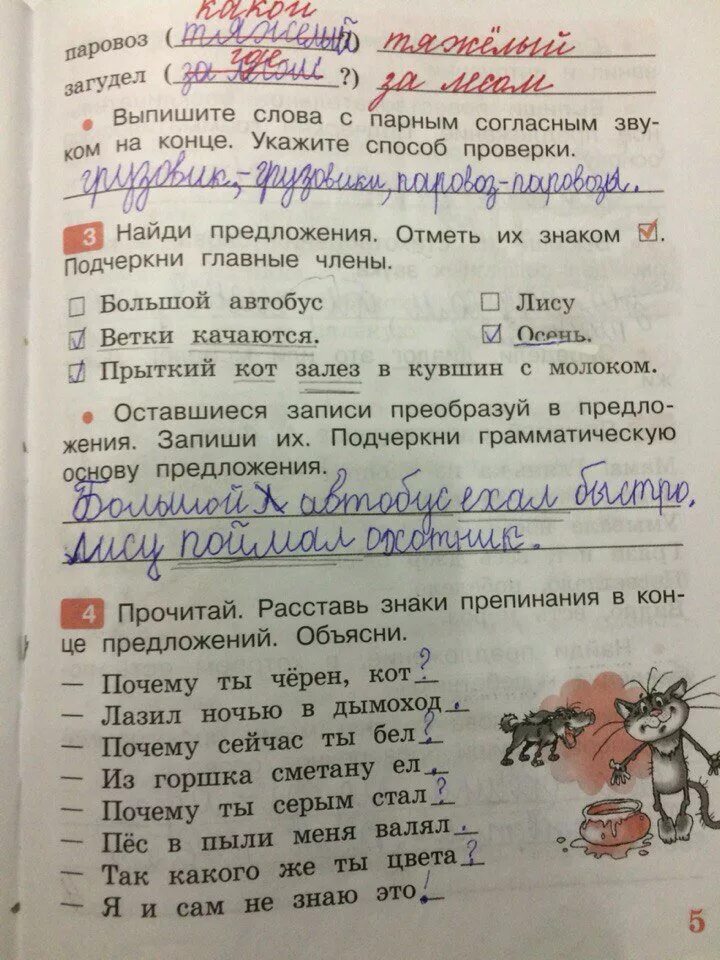 какой
паровоз ( тяжелый ?) тяжёлый
где
загудел ( за лесом ?) за лесом
• Выпишите слова с парным согласным зву-
ком на конце. Укажите способ проверки.
грузовик, - грузовики, паровоз - паровозы.
3 Найди предложения. Отметь их знаком ☑.
Подчеркни главные члены.
☐ Большой автобус ☐ Лису
☑ Ветки качаются. ☑ Осень.
☑ Прыткий кот залез в кувшин с молоком.
• Оставшиеся записи преобразуй в предло-
жения. Запиши их. Подчеркни грамматическую
основу предложения.
Большой автобус ехал быстро.
лису поймал охотник.
4 Прочитай. Расставь знаки препинания в кон-
це предложений. Объясни.
— Почему ты чёрен, кот?
— Лазил ночью в дымоход.
— Почему сейчас ты бел?
— Из горшка сметану ел.
— Почему ты серым стал?
— Пёс в пыли меня валял.
— Так какого же ты цвета?
— Я и сам не знаю это!
5